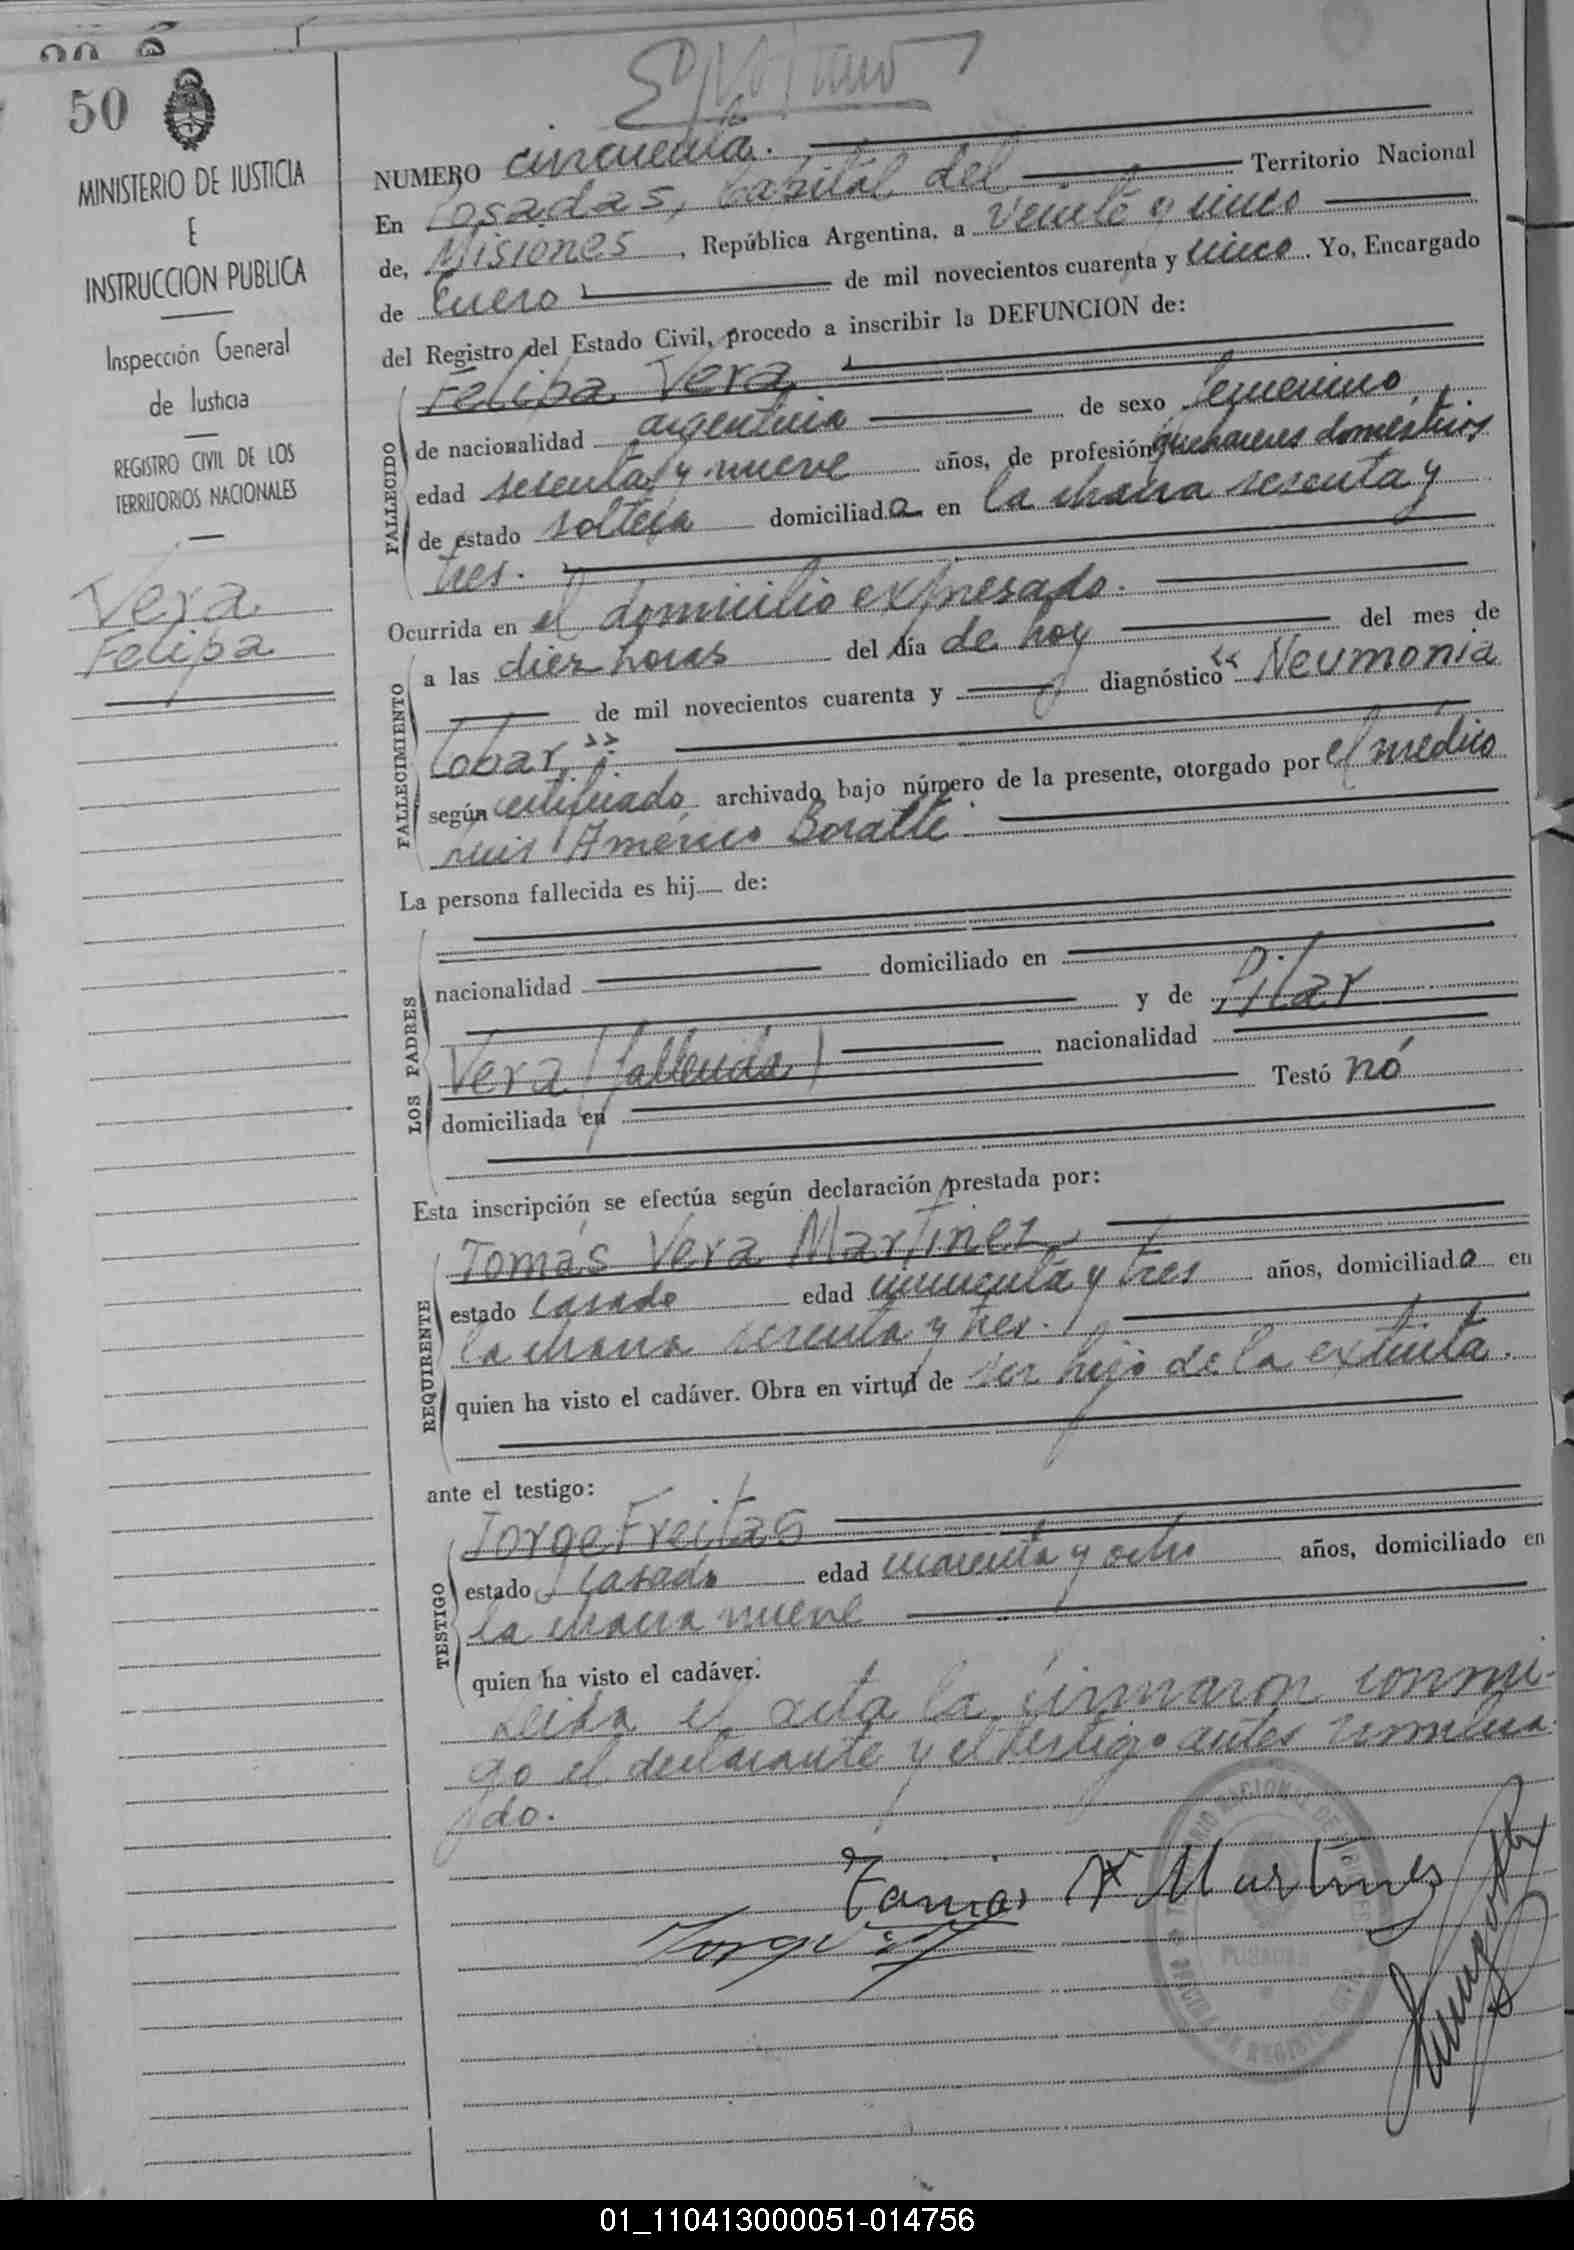 50
MINISTERIO DE JUSTICIA
E
INSTRUCCION PUBLICA
Inspección General
de Justicia
REGISTRO CIVIL DE LOS
TERRITORIOS NACIONALES
Vera
Felipa
NUMERO cincuenta.
En Posadas, Capital del Territorio Nacional
de, Misiones, República Argentina, a veinte y cinco
de Enero de mil novecientos cuarenta y cinco. Yo, Encargado
del Registro del Estado Civil, procedo a inscribir la DEFUNCION de:
FALLECIDO
Felipa Vera
de nacionalidad argentina de sexo femenino
edad sesenta y nueve años, de profesión quehaceres domésticos
de estado soltera domiciliada en la chacra sesenta y
tres.
Ocurrida en el domicilio expresado.
FALLECIMIENTO
a las diez horas del día de hoy del mes de
de mil novecientos cuarenta y diagnóstico "Neumonia
lobar".
según certificado archivado bajo número de la presente, otorgado por el médico
Luis Américo
La persona fallecida es hij de:
LOS PADRES
nacionalidad domiciliado en
y de Pilar
Vera (fallecida) nacionalidad
domiciliada en Testó nó
Esta inscripción se efectúa según declaración prestada por:
REQUIRENTE
Tomás Vera Martinez
estado casado edad cincuenta y tres años, domiciliado en
la chacra sesenta y tres.
quien ha visto el cadáver. Obra en virtud de ser hijo de la extinta.
ante el testigo:
TESTIGO
Jorge Freitas
estado casado edad cuarenta y ocho años, domiciliado en
la chacra nueve
quien ha visto el cadáver.
Leida el acta la firmaron conmi-
go el declarante y el testigo antes nombra-
do.
Tomas V Martines
Jorge
POSADAS
01_110413000051-014756